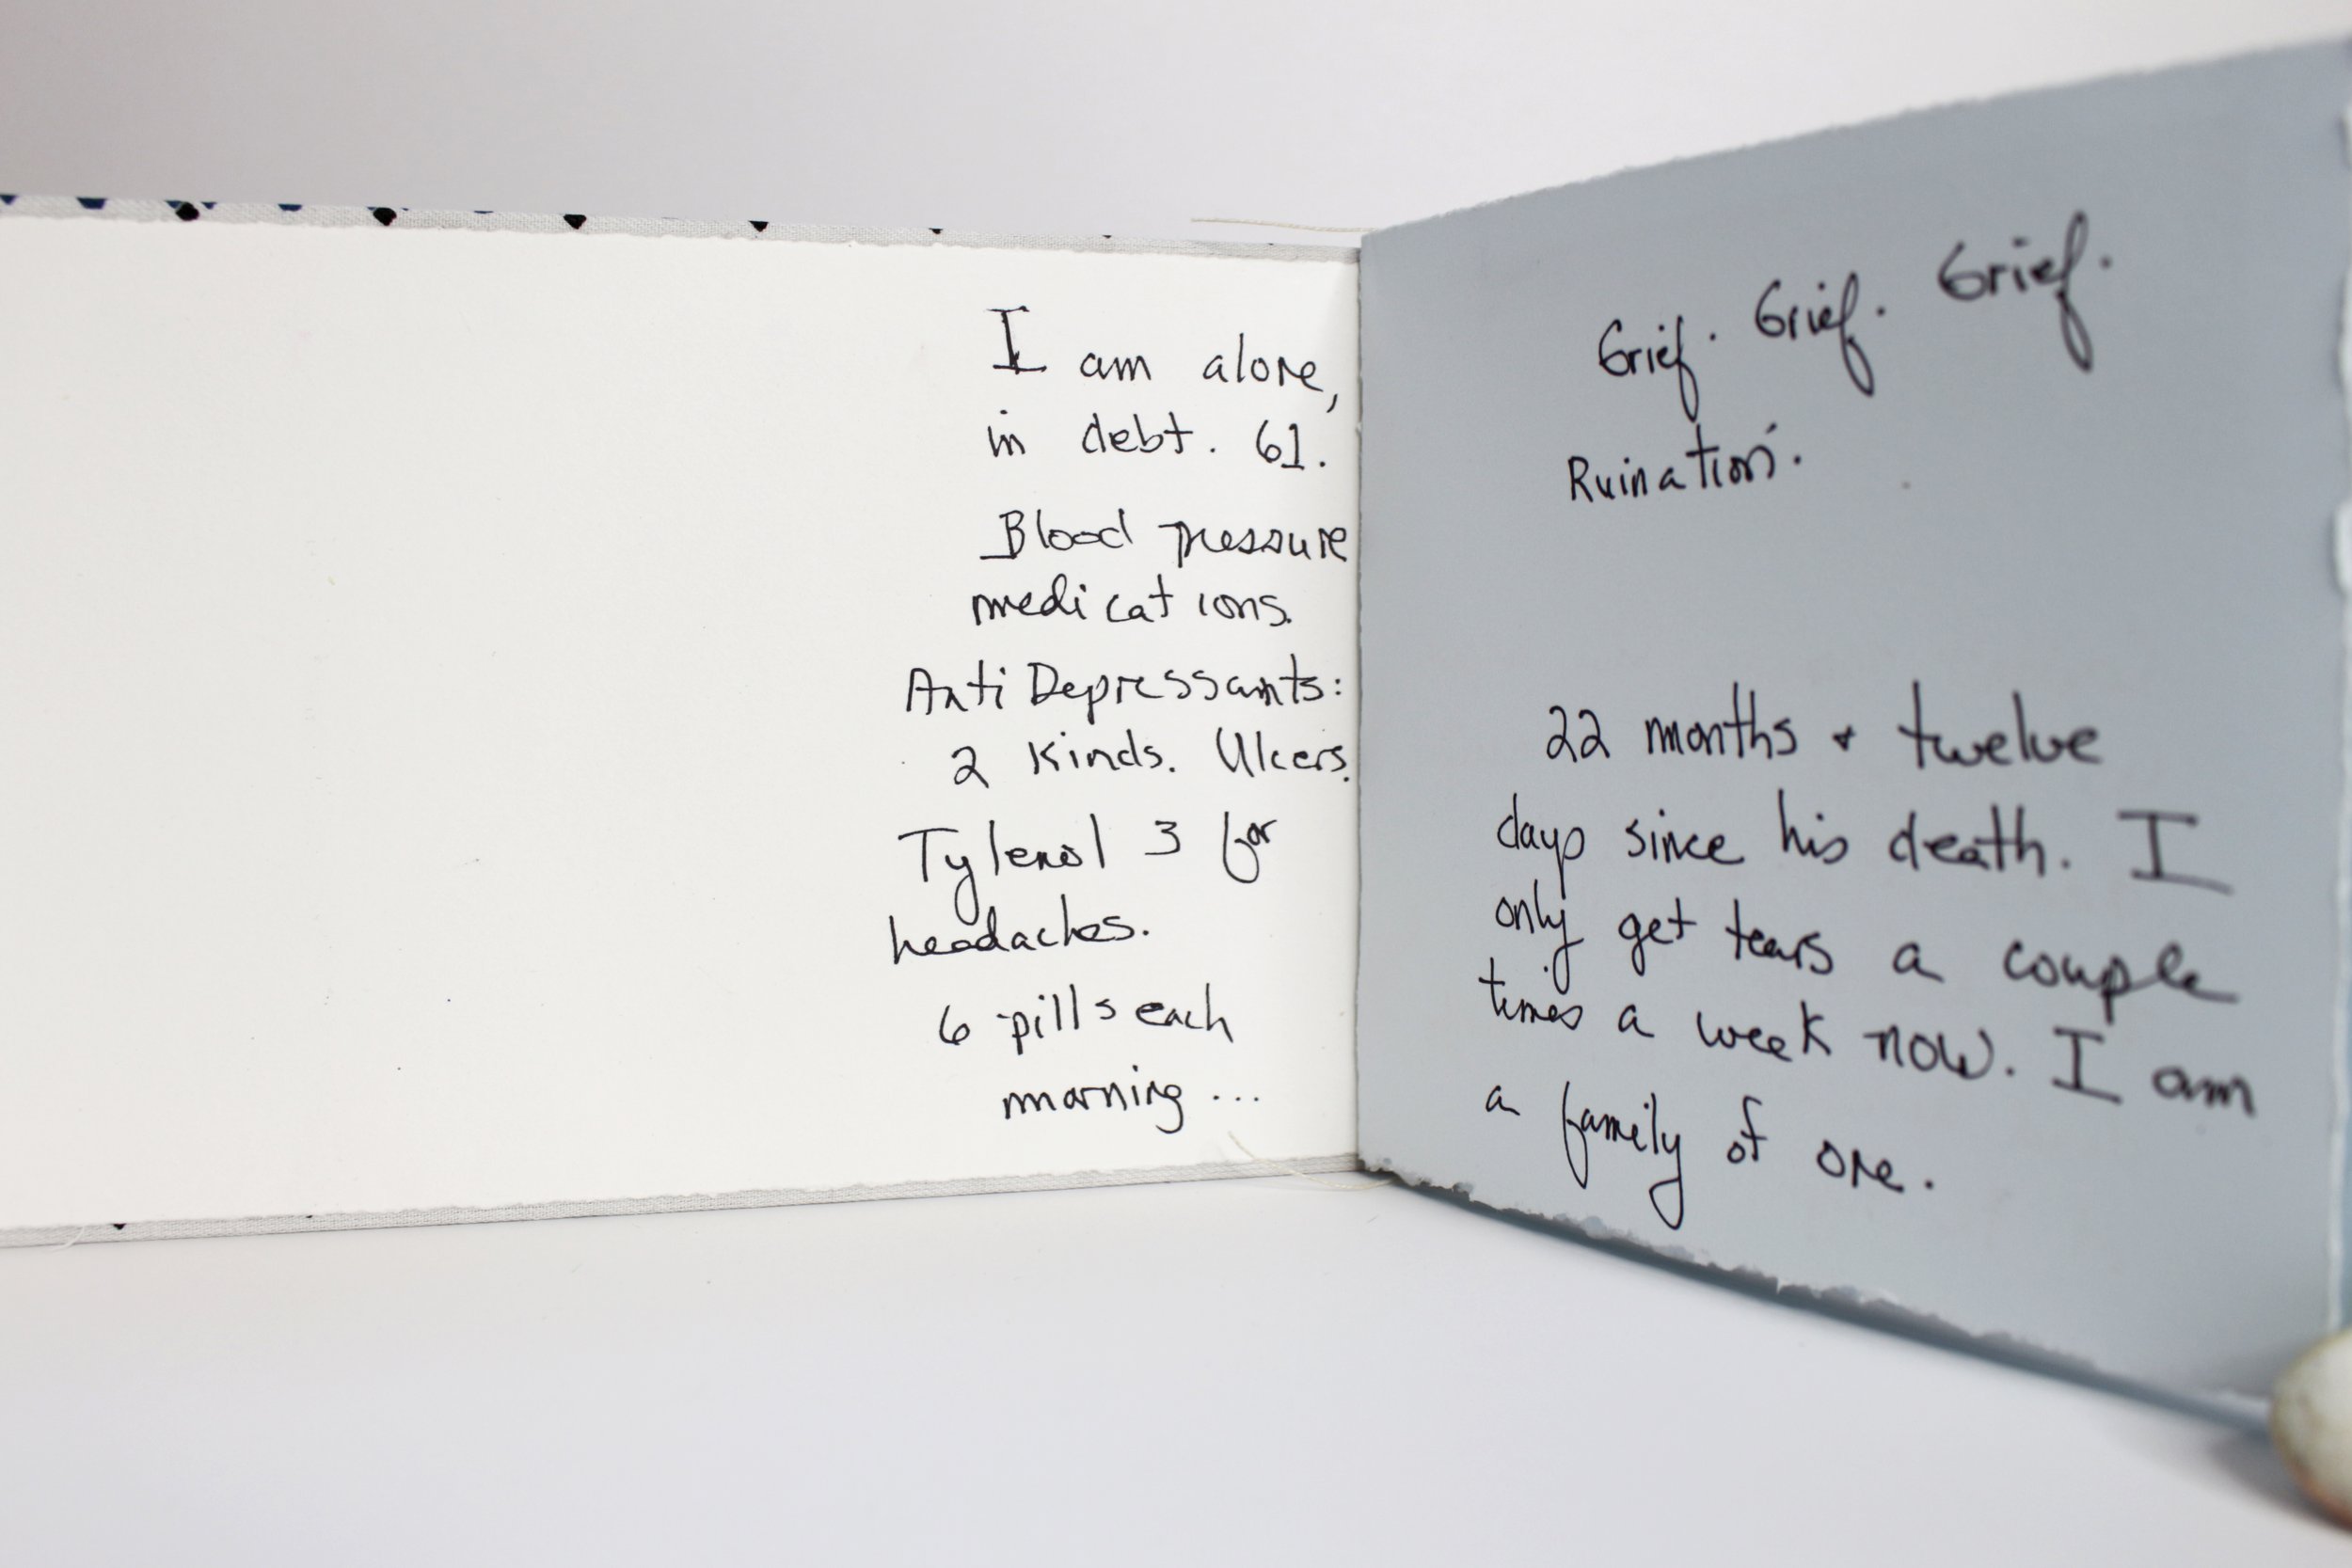 I am alone,
in debt. 61.
Blood pressure
medications.
Anti Depressants:
2 Kinds. Ulcers.
Tylenol 3 for
headaches.
6 pills each
morning...
Grief. Grief. Grief.
Ruination.
22 months + twelve
days since his death. I
only get tears a couple
times a week now. I am
a family of one.